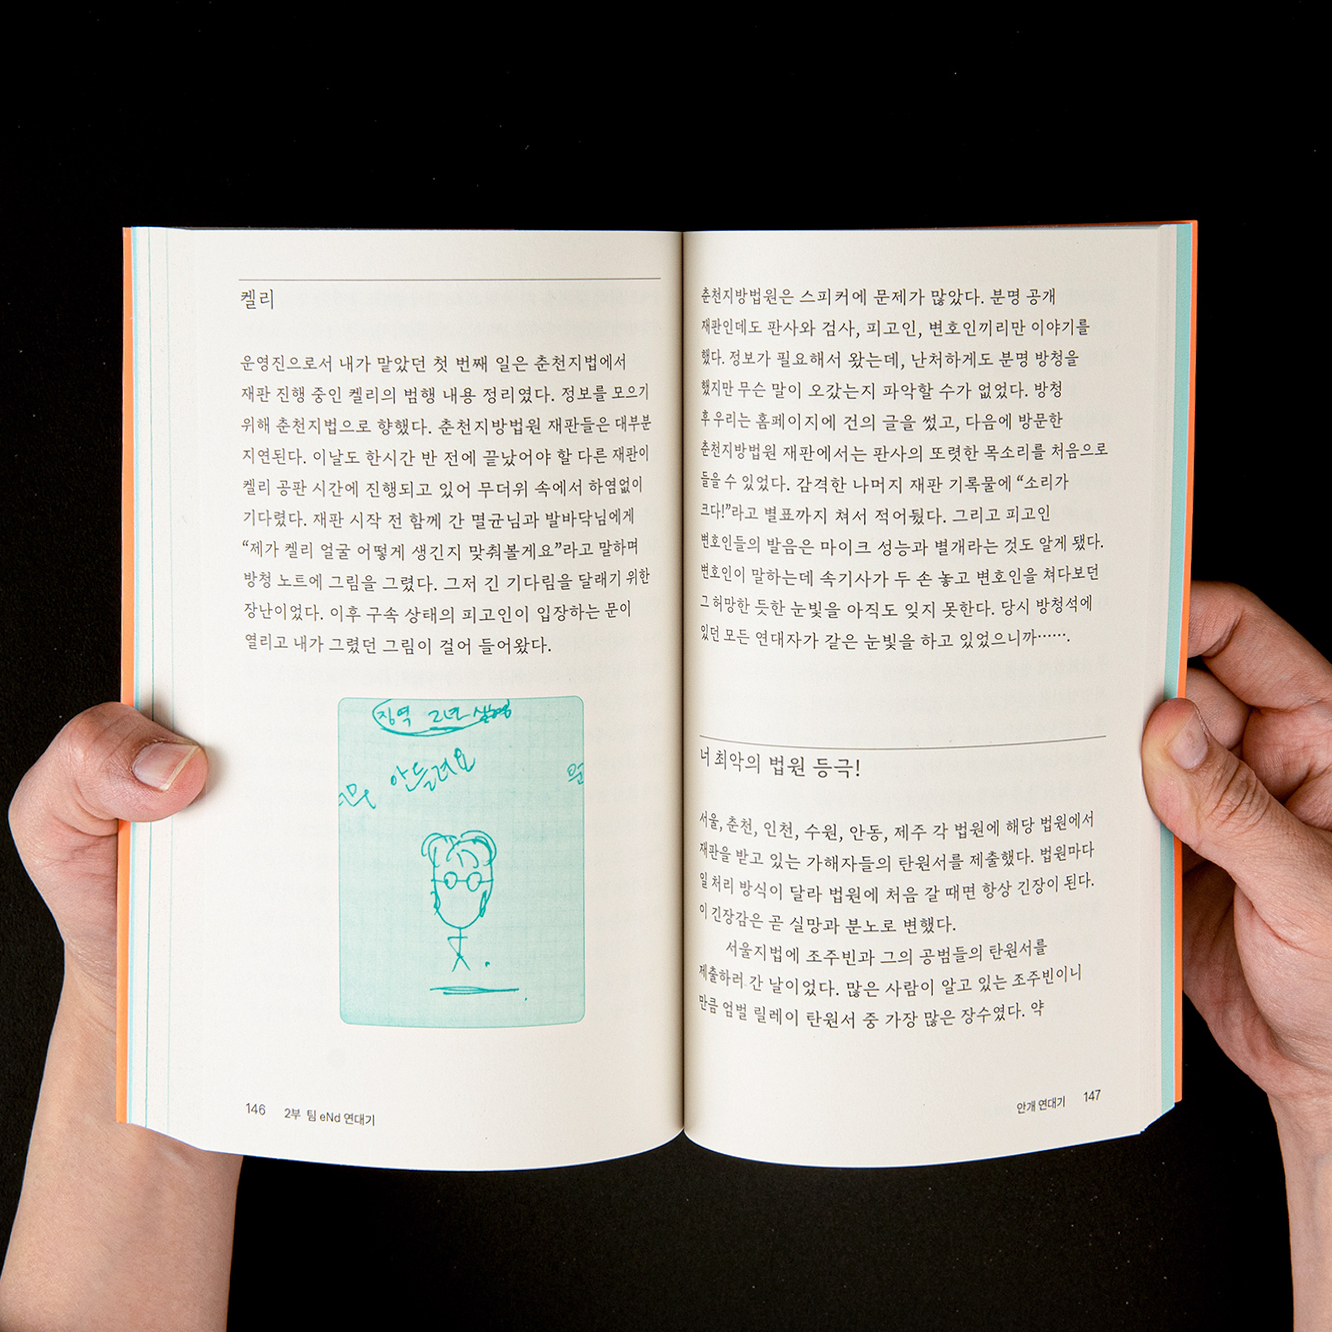 켈리
운영진으로서 내가 맡았던 첫 번째 일은 춘천지법에서
재판 진행 중인 켈리의 범행 내용 정리였다. 정보를 모으기
위해 춘천지법으로 향했다. 춘천지방법원 재판들은 대부분
지연된다. 이날도 한시간 반 전에 끝났어야 할 다른 재판이
켈리 공판 시간에 진행되고 있어 무더위 속에서 하염없이
기다렸다. 재판 시작 전 함께 간 멸균님과 발바닥님에게
“제가 켈리 얼굴 어떻게 생긴지 맞춰볼게요”라고 말하며
방청 노트에 그림을 그렸다. 그저 긴 기다림을 달래기 위한
장난이었다. 이후 구속 상태의 피고인이 입장하는 문이
열리고 내가 그렸던 그림이 걸어 들어왔다.
징역 2년 실형
안들려요
146 2부 팀 eNd 연대기
춘천지방법원은 스피커에 문제가 많았다. 분명 공개
재판인데도 판사와 검사, 피고인, 변호인끼리만 이야기를
했다. 정보가 필요해서 왔는데, 난처하게도 분명 방청을
했지만 무슨 말이 오갔는지 파악할 수가 없었다. 방청
후 우리는 홈페이지에 건의 글을 썼고, 다음에 방문한
춘천지방법원 재판에서는 판사의 또렷한 목소리를 처음으로
들을 수 있었다. 감격한 나머지 재판 기록물에 “소리가
크다!”라고 별표까지 쳐서 적어뒀다. 그리고 피고인
변호인들의 발음은 마이크 성능과 별개라는 것도 알게 됐다.
변호인이 말하는데 속기사가 두 손 놓고 변호인을 쳐다보던
그 허망한 듯한 눈빛을 아직도 잊지 못한다. 당시 방청석에
있던 모든 연대자가 같은 눈빛을 하고 있었으니까…….
너 최악의 법원 등극!
서울, 춘천, 인천, 수원, 안동, 제주 각 법원에 해당 법원에서
재판을 받고 있는 가해자들의 탄원서를 제출했다. 법원마다
일 처리 방식이 달라 법원에 처음 갈 때면 항상 긴장이 된다.
이 긴장감은 곧 실망과 분노로 변했다.
서울지법에 조주빈과 그의 공범들의 탄원서를
제출하러 간 날이었다. 많은 사람이 알고 있는 조주빈이니
만큼 엄벌 릴레이 탄원서 중 가장 많은 장수였다. 약
안개 연대기 147